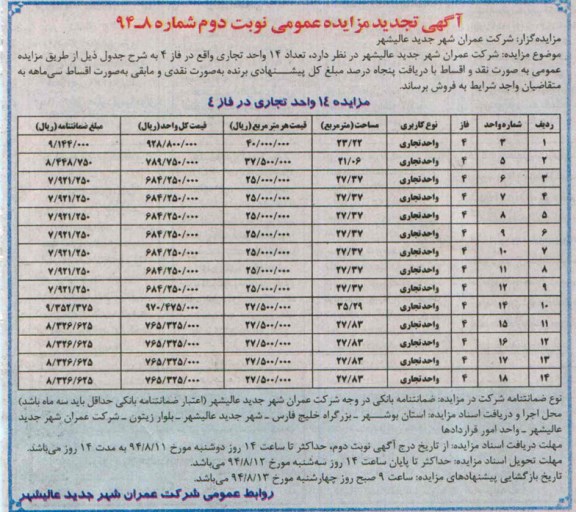 آگهی تجدید مزایده عمومی نوبت دوم شماره ۸ـ۹۴
مزایده‌گزار: شرکت عمران شهر جدید عالیشهر
موضوع مزایده: شرکت عمران شهر جدید عالیشهر در نظر دارد، تعداد ۱۴ واحد تجاری واقع در فاز ۴ به شرح جدول ذیل از طریق مزایده
عمومی به صورت نقد و اقساط با دریافت پنجاه درصد مبلغ کل پیشنهادی برنده به‌صورت نقدی و مابقی به‌صورت اقساط سی‌ماهه به
متقاضیان واجد شرایط به فروش برساند.
مزایده ۱۴ واحد تجاری در فاز ۴
ردیف شماره واحد فاز نوع کاربری مساحت(مترمربع) قیمت هر مترمربع(ریال) قیمت کل واحد(ریال) مبلغ ضمانتنامه(ریال)
۱ ۳ ۴ واحد تجاری ۲۳/۲۲ ۴۰/۰۰۰/۰۰۰ ۹۲۸/۸۰۰/۰۰۰ ۹/۱۴۴/۰۰۰
۲ ۵ ۴ واحد تجاری ۲۱/۰۶ ۳۷/۵۰۰/۰۰۰ ۷۸۹/۷۵۰/۰۰۰ ۸/۴۴۸/۷۵۰
۳ ۶ ۴ واحد تجاری ۲۷/۳۷ ۲۵/۰۰۰/۰۰۰ ۶۸۴/۲۵۰/۰۰۰ ۷/۹۲۱/۲۵۰
۴ ۷ ۴ واحد تجاری ۲۷/۳۷ ۲۵/۰۰۰/۰۰۰ ۶۸۴/۲۵۰/۰۰۰ ۷/۹۲۱/۲۵۰
۵ ۸ ۴ واحد تجاری ۲۷/۳۷ ۲۵/۰۰۰/۰۰۰ ۶۸۴/۲۵۰/۰۰۰ ۷/۹۲۱/۲۵۰
۶ ۹ ۴ واحد تجاری ۲۷/۳۷ ۲۵/۰۰۰/۰۰۰ ۶۸۴/۲۵۰/۰۰۰ ۷/۹۲۱/۲۵۰
۷ ۱۰ ۴ واحد تجاری ۲۷/۳۷ ۲۵/۰۰۰/۰۰۰ ۶۸۴/۲۵۰/۰۰۰ ۷/۹۲۱/۲۵۰
۸ ۱۱ ۴ واحد تجاری ۲۷/۳۷ ۲۵/۰۰۰/۰۰۰ ۶۸۴/۲۵۰/۰۰۰ ۷/۹۲۱/۲۵۰
۹ ۱۲ ۴ واحد تجاری ۲۷/۳۷ ۲۵/۰۰۰/۰۰۰ ۶۸۴/۲۵۰/۰۰۰ ۷/۹۲۱/۲۵۰
۱۰ ۱۴ ۴ واحد تجاری ۳۵/۲۹ ۲۷/۵۰۰/۰۰۰ ۹۷۰/۴۷۵/۰۰۰ ۹/۳۵۲/۳۷۵
۱۱ ۱۵ ۴ واحد تجاری ۲۷/۸۳ ۲۷/۵۰۰/۰۰۰ ۷۶۵/۳۲۵/۰۰۰ ۸/۳۲۶/۶۲۵
۱۲ ۱۶ ۴ واحد تجاری ۲۷/۸۳ ۲۷/۵۰۰/۰۰۰ ۷۶۵/۳۲۵/۰۰۰ ۸/۳۲۶/۶۲۵
۱۳ ۱۷ ۴ واحد تجاری ۲۷/۸۳ ۲۷/۵۰۰/۰۰۰ ۷۶۵/۳۲۵/۰۰۰ ۸/۳۲۶/۶۲۵
۱۴ ۱۸ ۴ واحد تجاری ۲۷/۸۳ ۲۷/۵۰۰/۰۰۰ ۷۶۵/۳۲۵/۰۰۰ ۸/۳۲۶/۶۲۵
نوع ضمانتنامه شرکت در مزایده: ضمانتنامه بانکی در وجه شرکت عمران شهر جدید عالیشهر (اعتبار ضمانتنامه بانکی حداقل باید سه ماه باشد)
محل اجرا و دریافت اسناد مزایده: استان بوشهر ـ بزرگراه خلیج فارس ـ شهر جدید عالیشهر ـ بلوار زیتون ـ شرکت عمران شهر جدید
عالیشهر ـ واحد امور قراردادها
مهلت دریافت اسناد مزایده: از تاریخ درج آگهی نوبت دوم، حداکثر تا ساعت ۱۴ روز دوشنبه مورخ ۹۴/۸/۱۱ به مدت ۱۴ روز می‌باشد.
مهلت تحویل اسناد مزایده: حداکثر تا پایان ساعت ۱۴ روز سه‌شنبه مورخ ۹۴/۸/۱۲ می‌باشد.
تاریخ بازگشایی پیشنهادهای مزایده: ساعت ۹ صبح روز چهارشنبه مورخ ۹۴/۸/۱۳ می‌باشد.
روابط عمومی شرکت عمران شهر جدید عالیشهر